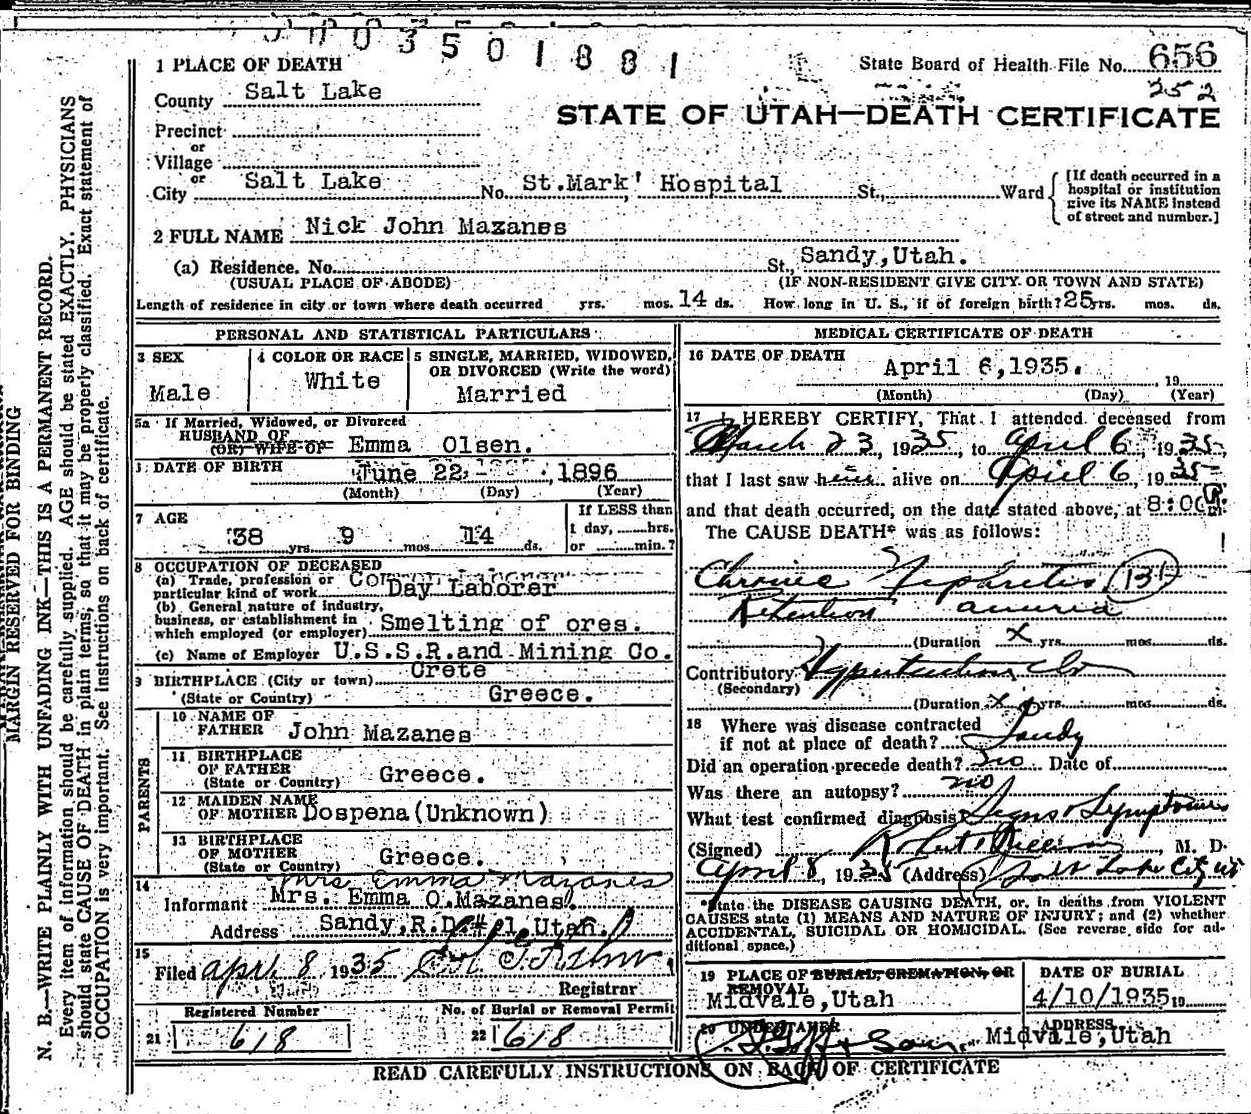 003501881
1 PLACE OF DEATH
State Board of Health File No. 656
252
County Salt Lake
STATE OF UTAH—DEATH CERTIFICATE
Precinct
or
Village
or
City Salt Lake No. St.Mark' Hospital St., Ward
[If death occurred in a
hospital or institution
give its NAME instead
of street and number.]
2 FULL NAME Nick John Mazanes
(a) Residence. No. St., Sandy,Utah.
(USUAL PLACE OF ABODE) (IF NON-RESIDENT GIVE CITY OR TOWN AND STATE)
Length of residence in city or town where death occurred yrs. mos. 14 ds. How long in U. S., if of foreign birth? 25 yrs. mos. ds.
PERSONAL AND STATISTICAL PARTICULARS
3 SEX
Male
4 COLOR OR RACE
White
5 SINGLE, MARRIED, WIDOWED,
OR DIVORCED (Write the word)
Married
5a If Married, Widowed, or Divorced
HUSBAND OF
(OR) WIFE OF Emma Olsen.
DATE OF BIRTH June 22, 1896
(Month) (Day) (Year)
7 AGE
38 yrs. 9 mos. 14 ds.
If LESS than
1 day, hrs.
or min.?
8 OCCUPATION OF DECEASED
(a) Trade, profession or
particular kind of work Day Laborer
(b) General nature of industry,
business, or establishment in
which employed (or employer) Smelting of ores.
(c) Name of Employer U.S.S.R.and Mining Co.
9 BIRTHPLACE (City or town) Crete
(State or Country) Greece.
PARENTS
10 NAME OF
FATHER John Mazanes
11 BIRTHPLACE
OF FATHER
(State or Country) Greece.
12 MAIDEN NAME
OF MOTHER Dospena(Unknown)
13 BIRTHPLACE
OF MOTHER
(State or Country) Greece.
14 Mrs Emma Mazanes
Informant Mrs. Emma O.Mazanes.
Address Sandy,R.D.#1,Utah.
15
Filed april 8 1935
Registrar
Registered Number
21 618
No. of Burial or Removal Permit
22 618
MEDICAL CERTIFICATE OF DEATH
16 DATE OF DEATH April 6,1935.
, 19
(Month) (Day) (Year)
17 I HEREBY CERTIFY, That I attended deceased from
March 23, 1935, to april 6, 1935,
that I last saw him alive on April 6, 1935
and that death occurred, on the date stated above, at 8:00 P m.
The CAUSE DEATH* was as follows:
Chronic Nephritis (131)
Retention anuria
(Duration x yrs. mos. ds.
Contributory Hypertension
(Secondary)
(Duration x yrs. mos. ds.
18 Where was disease contracted
if not at place of death? Sandy
Did an operation precede death? no Date of
Was there an autopsy? no
What test confirmed diagnosis Signs & Symptoms
(Signed) , M. D.
April 8, 1935 (Address) Salt Lake City ut
*State the DISEASE CAUSING DEATH, or, in deaths from VIOLENT
CAUSES state (1) MEANS AND NATURE OF INJURY; and (2) whether
ACCIDENTAL, SUICIDAL OR HOMICIDAL. (See reverse side for ad-
ditional space.)
19 PLACE OF BURIAL, CREMATION, OR
REMOVAL
Midvale,Utah
DATE OF BURIAL
4/10/1935 19
20 UNDERTAKER
Goff & Sons
ADDRESS
Midvale,Utah
READ CAREFULLY INSTRUCTIONS ON BACK OF CERTIFICATE
MARGIN RESERVED FOR BINDING
N. B.—WRITE PLAINLY WITH UNFADING INK—THIS IS A PERMANENT RECORD.
Every item of information should be carefully supplied. AGE should be stated EXACTLY. PHYSICIANS
should state CAUSE OF DEATH in plain terms, so that it may be properly classified. Exact statement of
OCCUPATION is very important. See instructions on back of certificate.